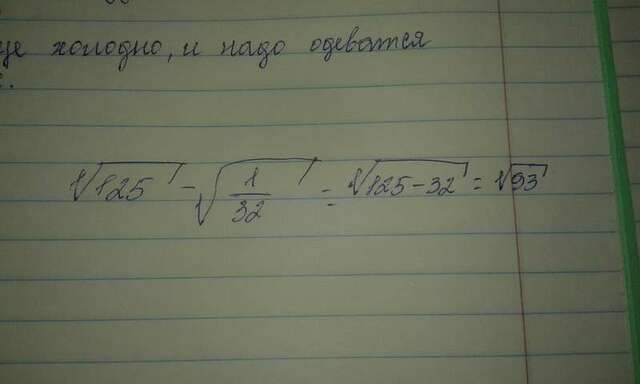 це холодно, и надо одеватся
√125 - √1/32 = √125-32 = √93